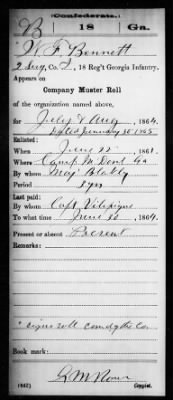 Confederate.
B | 18 | Ga.
W. F. Bennett
2 Serg, Co. , 18 Reg't Georgia Infantry.
Appears on
Company Muster Roll
of the organization named above,
for July & Aug, 1864.
Dated January 30 1865
Enlisted:
When June 22, 1861.
Where Camp McDonl Ga
By whom Maj
Period 3 yrs
Last paid:
By whom Capt.
To what time June 30, 1864.
Present or absent Present
Remarks:
signs roll comdg the Co.
(642) Copyist.